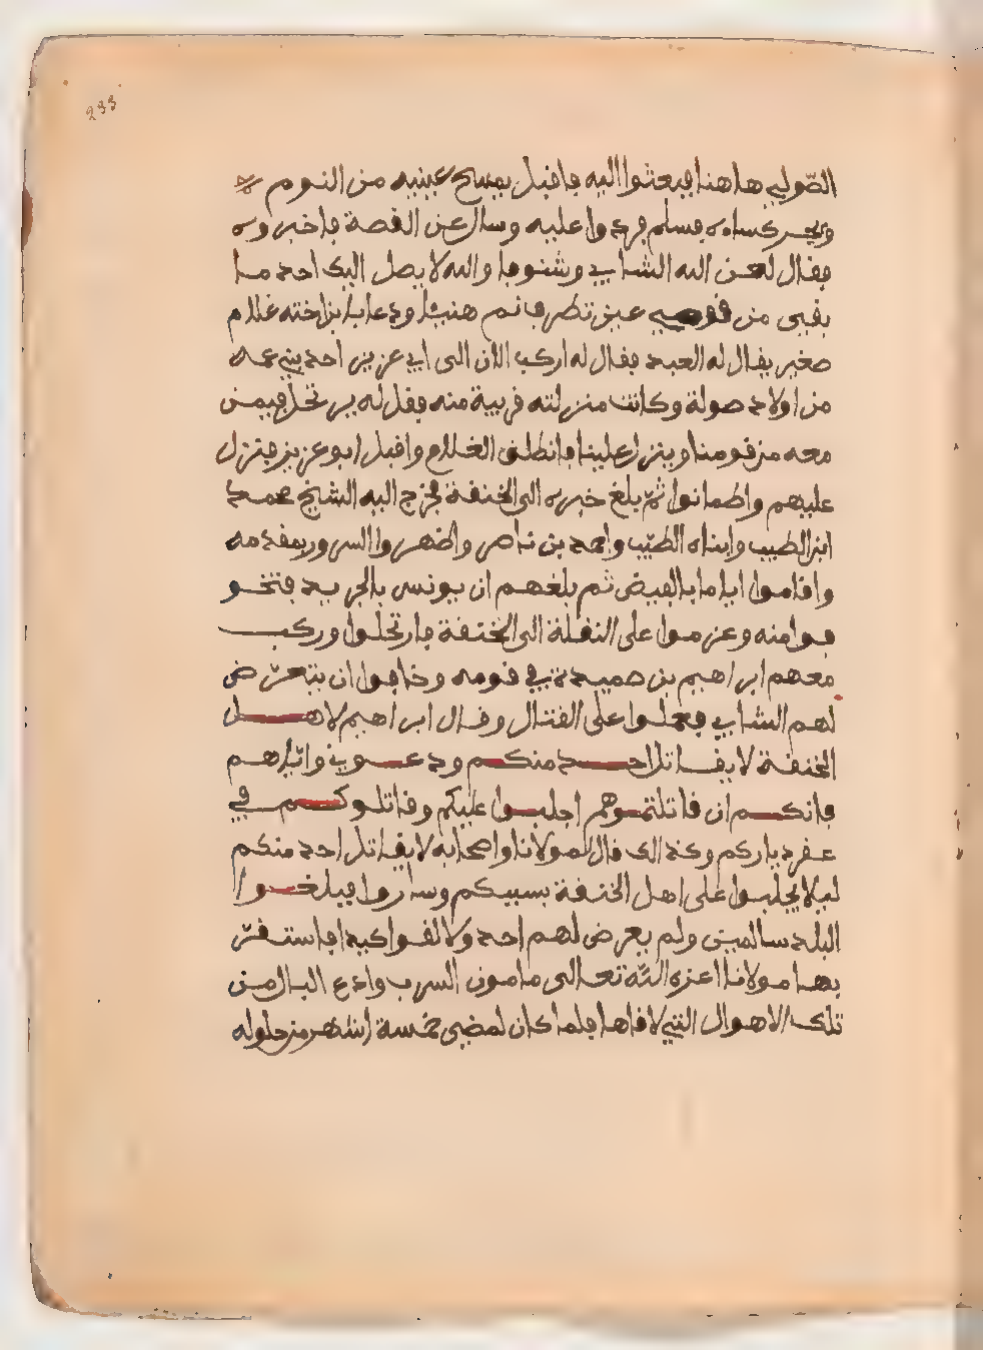 233
الصّولي هاهنا فبعثوا اليه فاقبل يمسح عينيه من النوم
ويجر كساءه فسلم فردوا عليه وسال عن القصة فاخبروه
فقال لعن الله الشابي وشنوفا والله لا يصل اليك احد ما
بقي من قومي عين تطرف نم هنيئا ودعا بابن اخته غلام
صغير يقال له العبد فقال له اركب الان الى ابي عزيز احد بني عمه
من اولاد صولة وكانت منزلته قريبة منه فقل له يرتحل فيمن
معه من قومنا وينزل علينا فانطلق الغلام واقبل ابو عزيز فنزل
عليهم واطمانوا ثمّ بلغ خبره الى الخنفة فخرج اليه الشيخ محمد
ابن الطبيب وابناه الطيّب واحمد بن ناصر واظهروا السرور بمقدمه
واقاموا اياما بالفيض ثم بلغهم ان يونس بالجريد فتخو
فوا منه وعزموا على النقلة الى الخنفة فارتحلوا وركب
معهم ابراهيم بن حميدة في قومه وخافوا ان يتعرّض
لهم الشابي فعملوا على القتال وقال ابراهيم لاهل
الخنفة لا يقاتل احد منكم ودعوني واياهم
فانكم ان قاتلتموهم اجلبوا عليكم وقاتلوكم في
عقر دياركم وكذالك قال لمولانا واصحابه لا يقاتل احد منكم
ليلا يجلبوا على اهل الخنفة بسببكم وساروا فبلغوا
البلد سالمين ولم يعرض لهم احد ولا لقوا كيدا فاستقرّ
بها مولانا اعزه اللّه تعالى مامون السرب وادع البال من
تلك الاهوال التي لاقاها فلما كان لمضي خمسة اشهر من حلوله